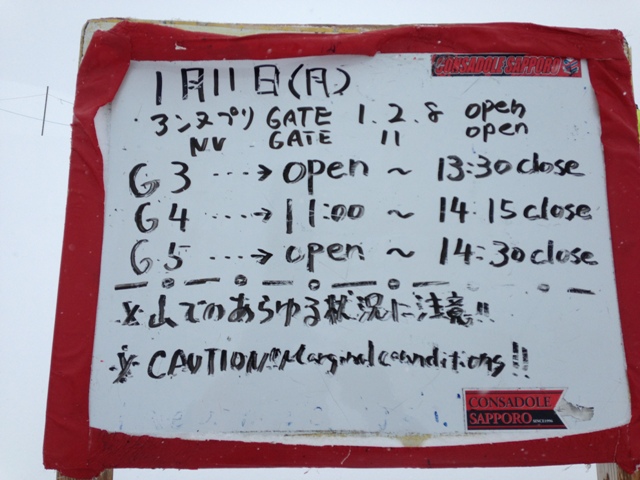 CONSADOLE SAPPORO
1月11日(月)
・アンヌプリ GATE 1.2.8 open
NV GATE 11 open
G3 ····→ open ~ 13:30 close
G4 ····→ 11:00 ~ 14.15 close
G5 ····→ open ~ 14:30 close
※山でのあらゆる状況に注意!!
※CAUTION!! Marginal conditions!!
CONSADOLE
SAPPORO